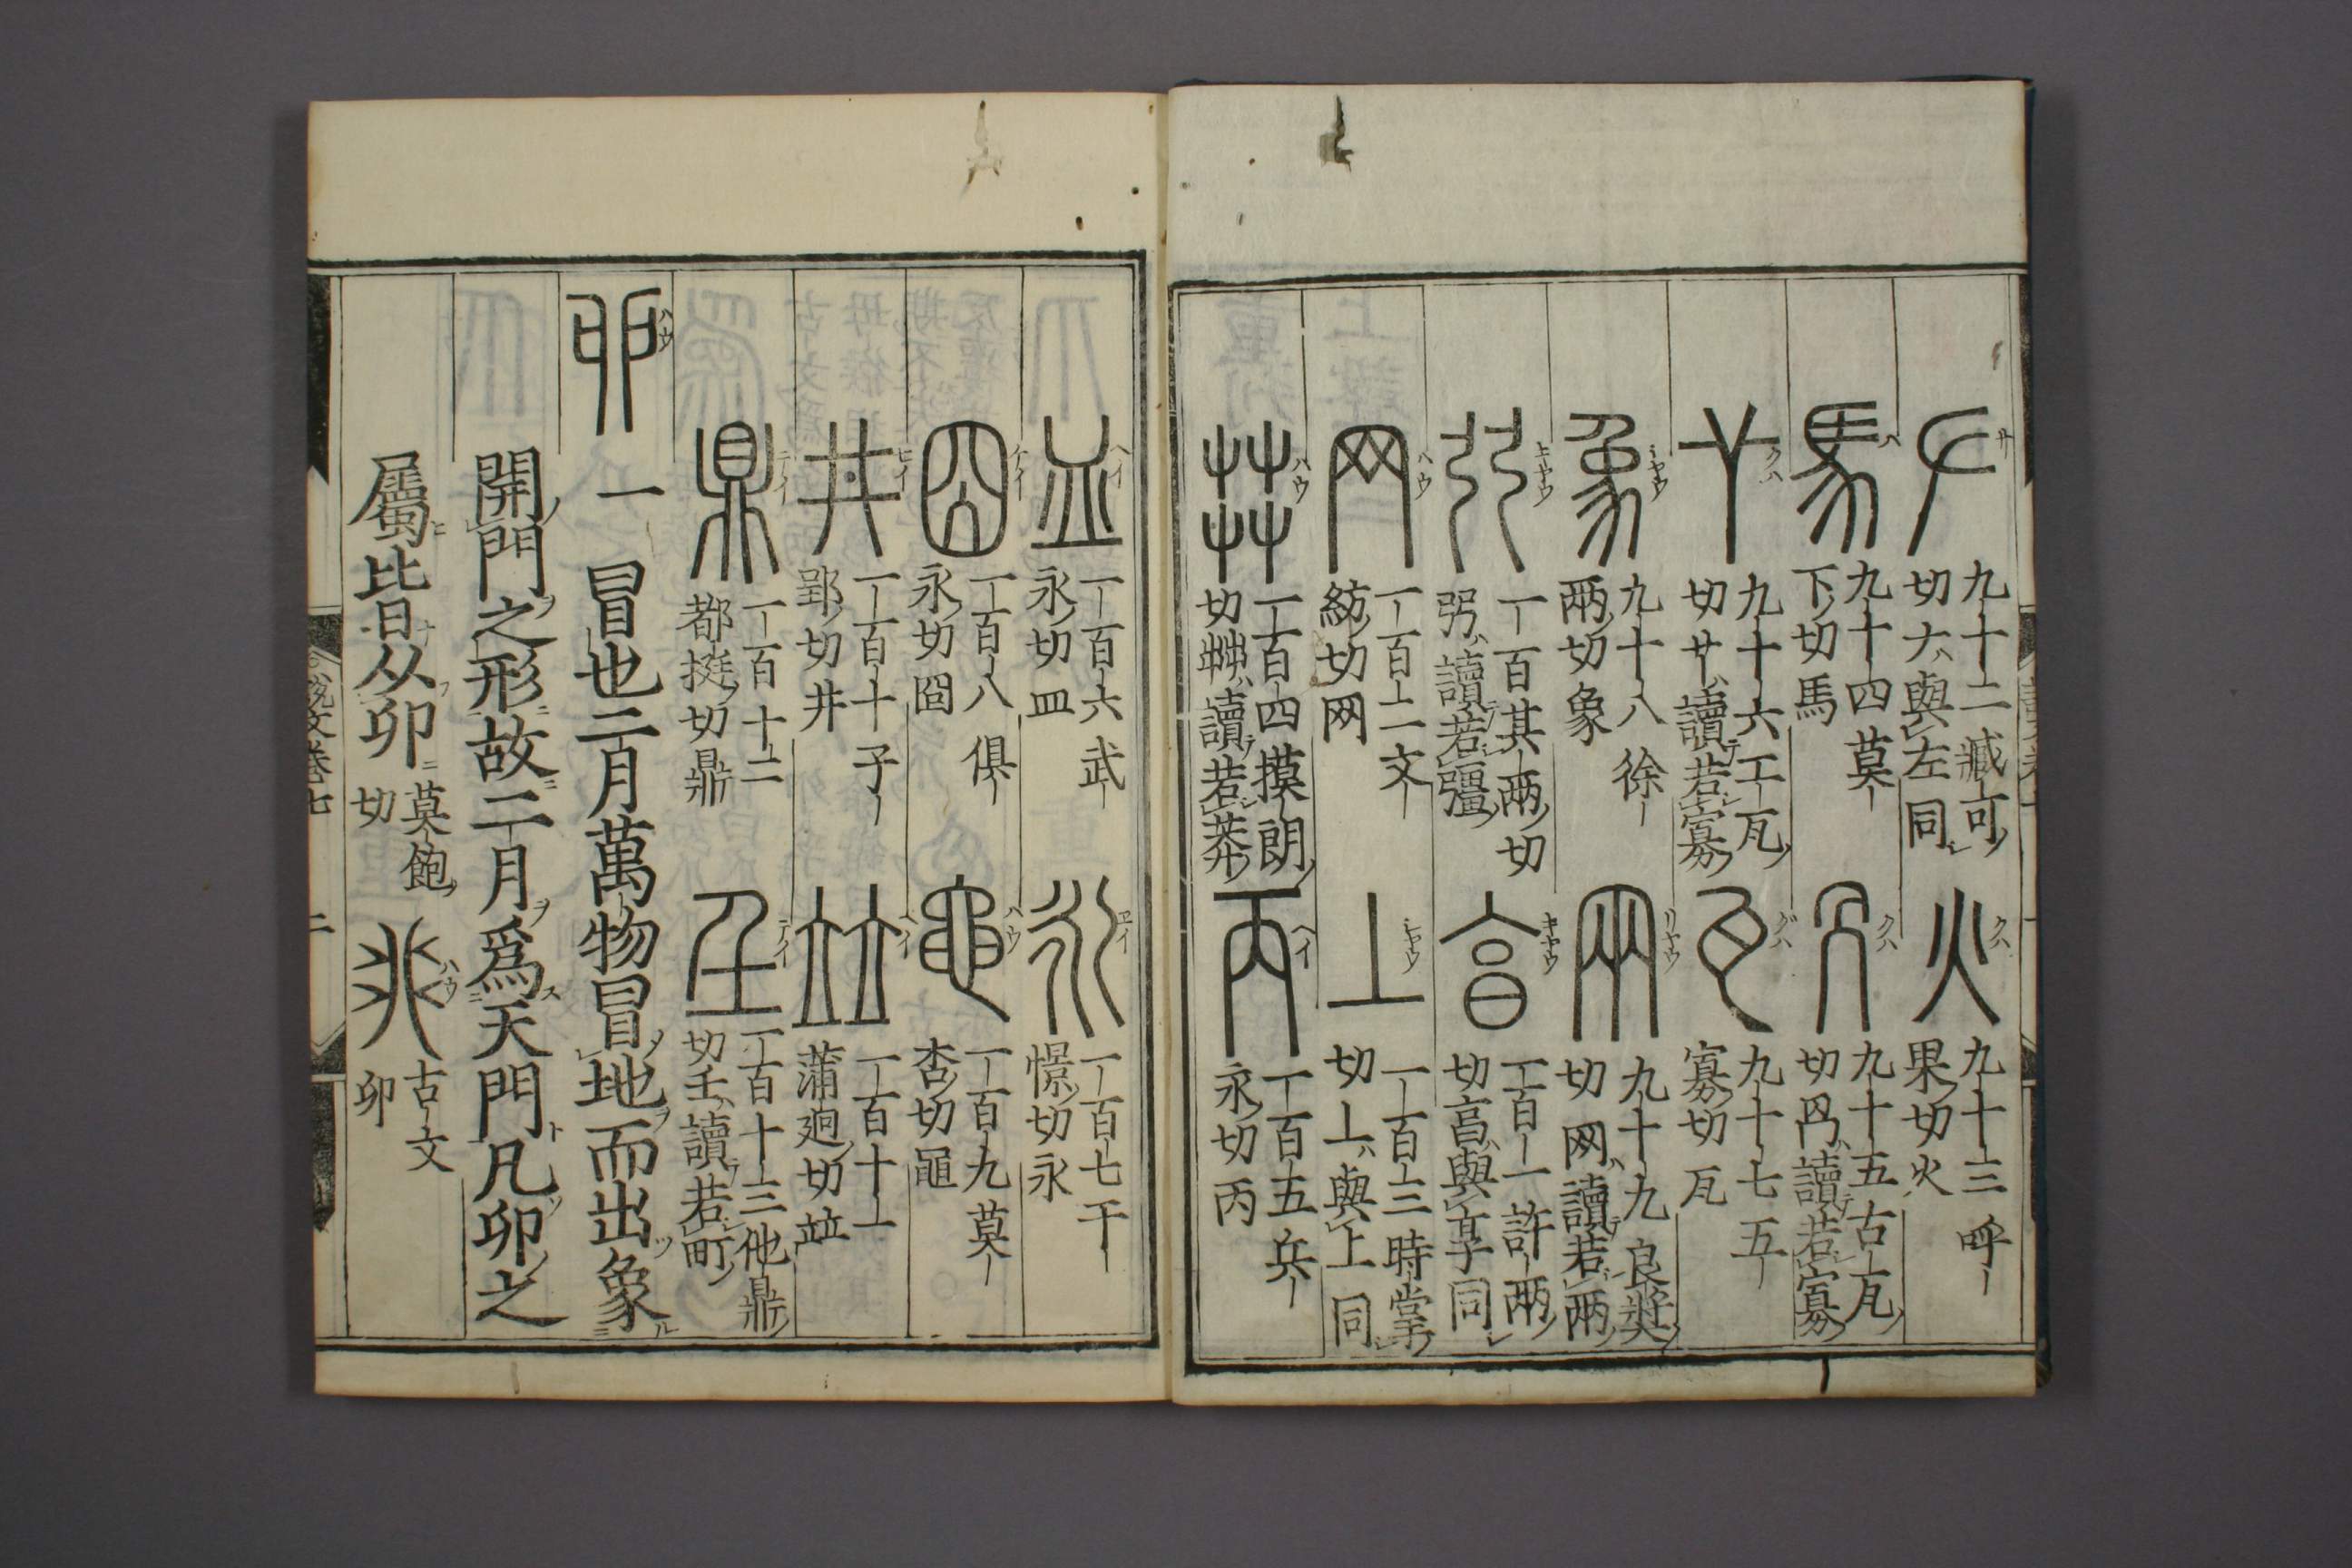 九十二臧可
切𠂇與左同
九十三呼
果切火
九十四莫
下切馬
九十五古瓦
切冎讀若寡
九十六工瓦
切𦫳讀若寡
九十七五
寡切瓦
九十八徐
兩切象
九十九良奬
切㒳讀若兩
一百其兩切
弜讀若彊
一百一許兩
切亯與享同
一百二文
紡切网
一百三時掌
切丄與上同
一百四摸朗
切茻讀若莽
一百五兵
永切丙
一百六武
永切皿
一百七于
憬切永
一百八俱
永切囧
一百九莫
杏切黽
一百十子
郢切井
一百十一
蒲迥切竝
一百十二
都挺切鼎
一百十三他鼎
切𡈼讀若町
卯 一 冒也二月萬物冒地而出象
開門之形故二月爲天門凡卯之
屬皆从卯 莫飽
切
古文
卯
說文卷七 二